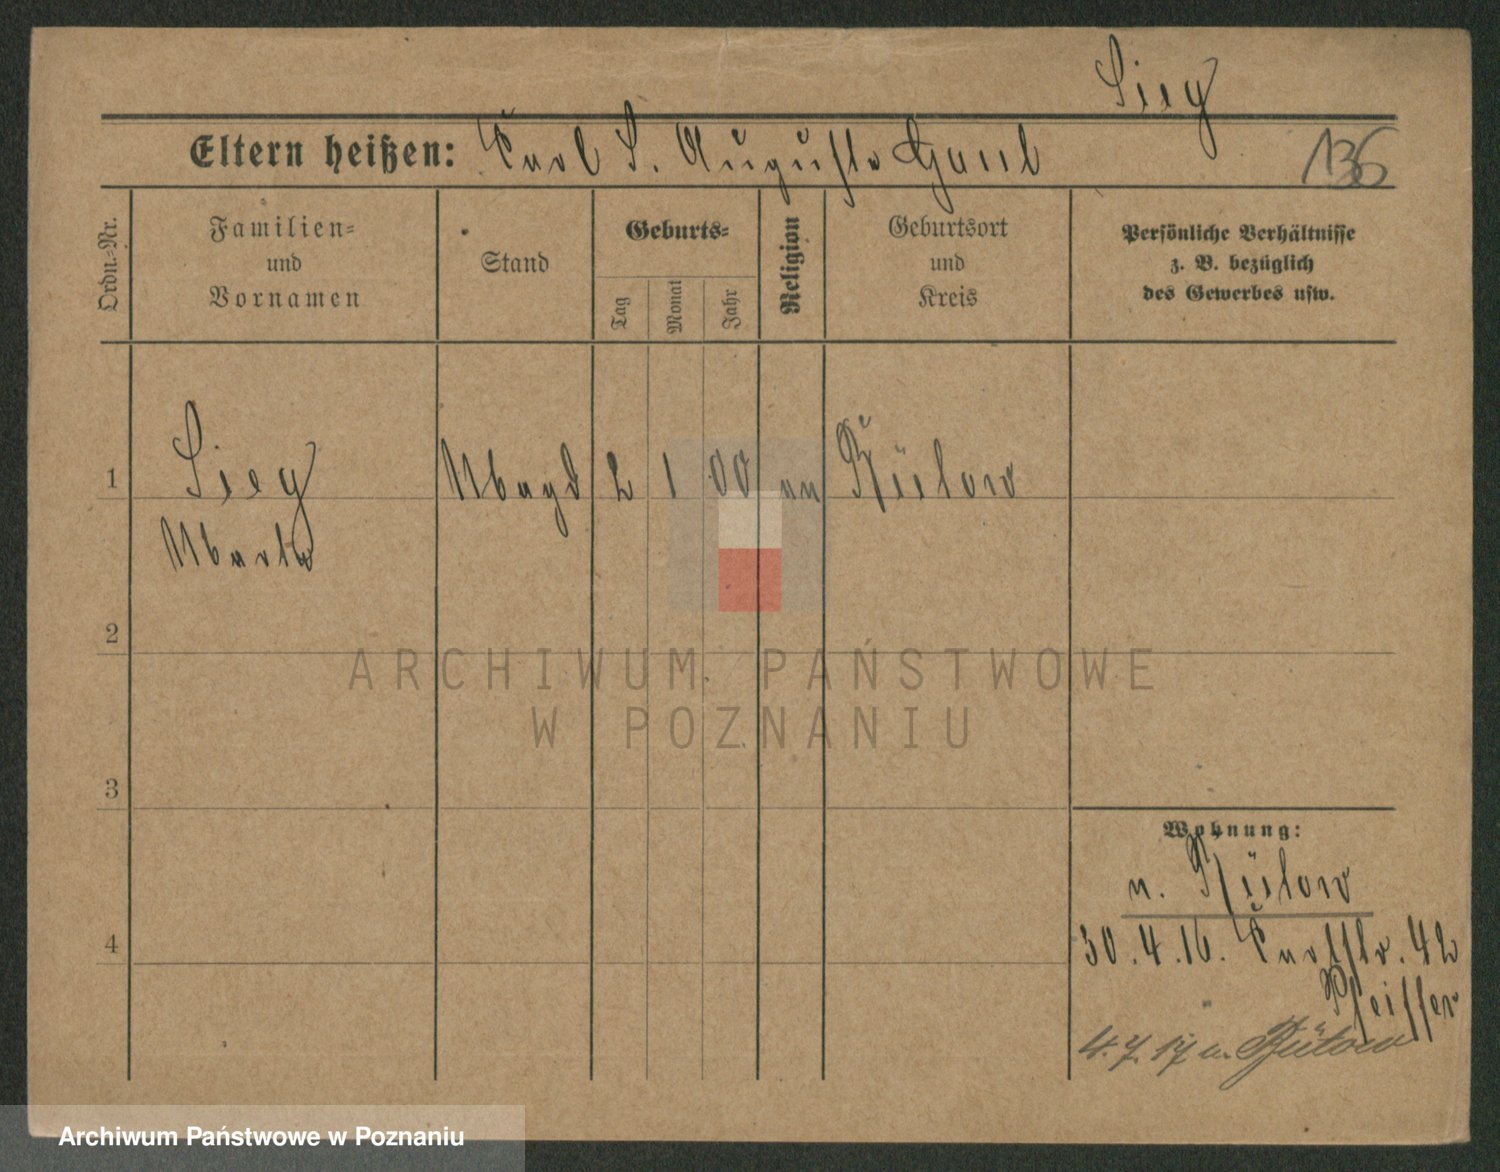 Sieg
Eltern heißen: Carl S. Auguste Gaul
136
Ordn.-Nr.
Familien=
und
Vornamen
Stand
Geburts=
Tag
Monat
Jahr
Religion
Geburtsort
und
Kreis
Persönliche Verhältnisse
z. B. bezüglich
des Gewerbes usw.
1
Sieg
Magd
2
1
00
Bülow
Martha
2
ARCHIWUM PAŃSTWOWE
W POZNANIU
3
Wohnung:
n. Bülow
4
30.4.16. 42
Pfeiffer
4.7.17 n. Bülow
Archiwum Państwowe w Poznaniu